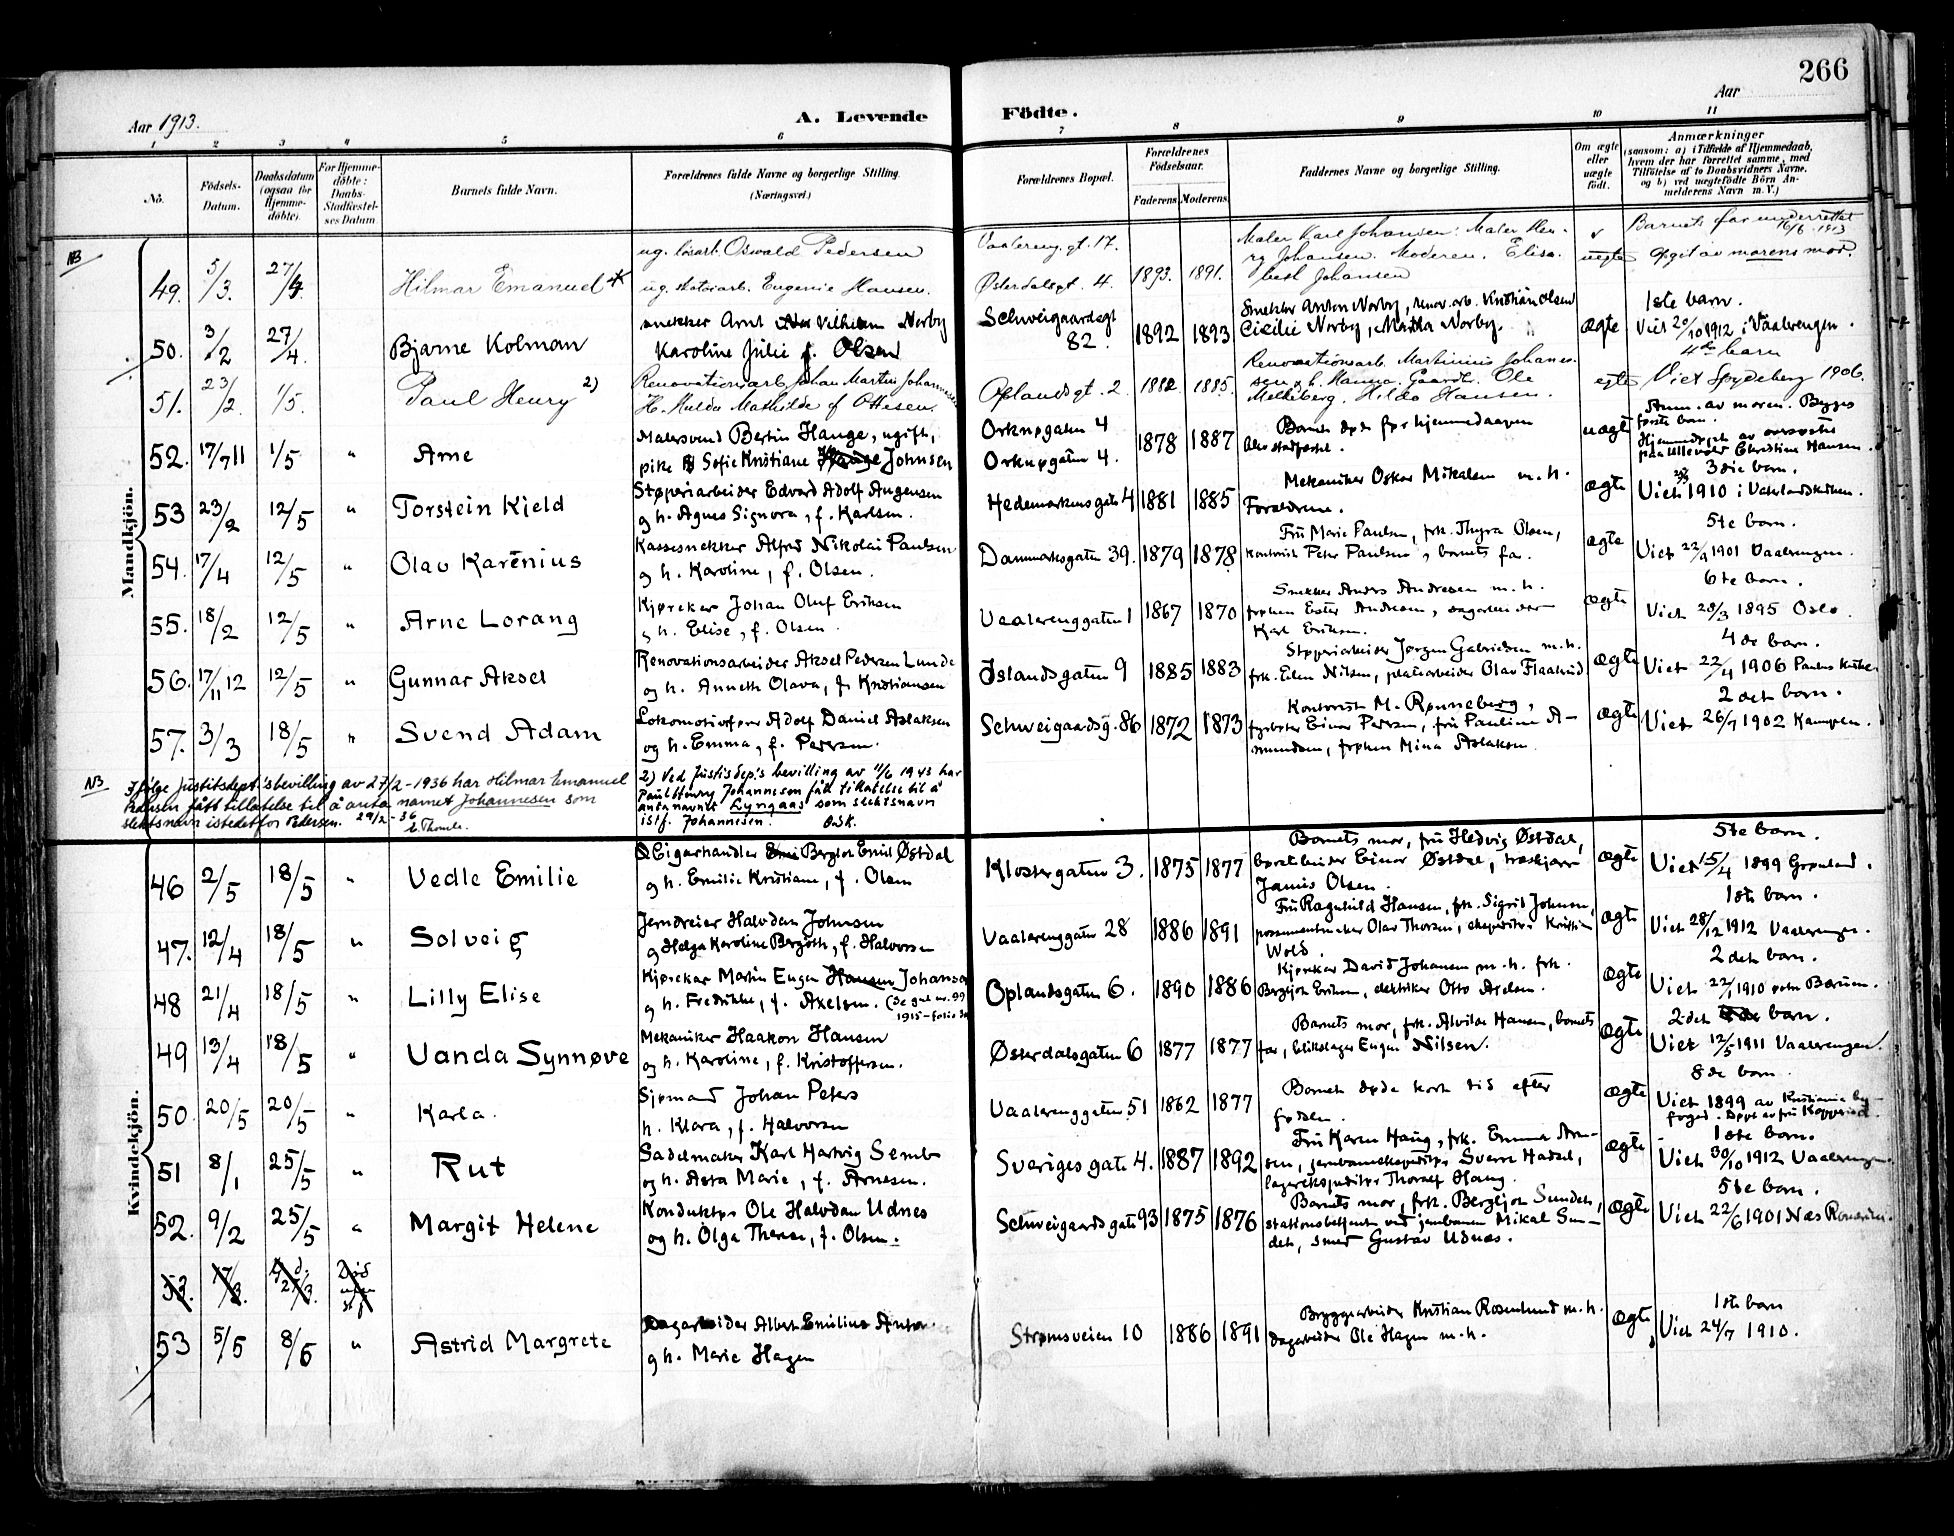 266
Aar 1913.
A. Levende Födte.
Aar
1 2 3 4 5 6 7 8 9 10 11
No.
Födsels-Datum.
Daabsdatum (ogsaa for Hjemme-döbte).
For Hjemme-döbte: Daabs-Stadfæstel-ses Datum
Barnets fulde Navn.
Forældrenes fulde Navne og borgerlige Stilling. (Næringsvei.)
Forældrenes Bopæl.
Forældrenes Födselsaar.
Faderens Moderens
Faddernes Navne og borgerlige Stilling.
Om ægte eller uægte födt.
Anmærkninger
(saasom: a) i Tilfælde af Hjemmedaab, hvem der har forrettet samme, med Tilföielse af to Daabsvidners Navne, og b) ved uægtefödte Börn An-melderens Navn m. V.)
Mandkjön.
NB
49. 5/3. 27/4 Hilmar Emanuel
ug. Oswald Pedersen
ug. Eugenie Hansen.
Vaalereng.gt. 17.
Østerdalsgt. 4. 1893. 1891.
Maler Karl Johansen. Maler Hen-
ry Johansen. Moderen. Elisa-
beth Johansen
uegte
Barnets far underrettet 16/6 1913
Opgit av morens mor.
50. 3/2 27/4. Bjarne Kolman
snekker Arnt Vilhelm Norby
Karoline Julie f. Olsen
Schweigaardsgt 82. 1892 1893
Snekker Anton Norby, renov.arb. Kristian Olsen
Cicilie Norby, Norby.
ægte
1ste barn.
Viet 20/10 1912 i Vaalerengen.
51. 23/2. 1/5. Paul Henry 2)
Renovationsarb. Johan Martin Johannesen
H. Hulda Mathilde f Ottesen.
Oplandsgt. 2 1882 1885.
Renovationsarb. Martinius Johannes-
sen og h. Hanna. Ole
Melleberg. Hilda Hansen.
egte
4de barn
Viet Spydeberg 1906.
52. 17/7 11 1/5 " Arne
Malersvend Bertin Hauge, ugift,
pike Sofie Kristiane Johnsen
Orknøgaten 4
Orknøgaten 4. 1878 1887
Barnet døpt før hjemmedaapen
uægte
Anm. av moren. Begges
første barn.
Hjemmedøpt av oversøster
paa Ullevaal Christine Hansen.
53 23/2 12/5 " Torstein Kield
Støperiarbeider Edvard Adolf Augensen
og h. Agnes Signora, f. Karlsen.
Hedemarkensgate 4 1881 1885
Mekaniker Oskar Mikalsen m. h.
Forældrene.
ægte
3die barn.
Viet 1910 i Vaterlandskirken.
54. 17/4 12/5 " Olav Karenius
Kassesnekker Alfred Nikolai Paulsen
og h. Karoline, f. Olsen.
Danmarksgaten 39. 1879 1878
Fru Marie Paulsen, frk. Thyra Olsen,
kontorist Peter Paulsen, barnets far.
ægte
5te barn.
Viet 22/9 1901 Vaalerengen.
55. 18/2 12/5 " Arne Lorang
Kjørekar Johan Oluf Eriksen
og h. Elise, f. Olsen.
Vaalerenggaten 1 1867 1870
Snekker Anders Andresen m. h.
frøken Ester Andresen,
Karl Eriksen.
ægte
6te barn.
Viet 20/3 1895 Oslo.
56. 17/11 12 12/5 " Gunnar Aksel
Renovationsarbeider Aksel Pedersen Lunde
og h. Anneth Olava, f. Kristiansen
Islandsgaten 9 1885 1883
Støperiarbeider Jørgen Gabrielsen m. h.
frk. Ellen Nilsen, platearbeider Olav Flaatrud
ægte
4de barn.
Viet 22/4 1906 Paulus kirke.
57. 3/3 18/5 " Svend Adam
Lokomotivfører Adolf Daniel Aslaksen
og h. Emma, f. Pedersen.
Schweigaardsg. 86 1872 1873
Kontorist M. Rønneberg,
fyrbøter Einar Pedersen, fru Pauline A-
mundsen, frøken Mina Aslaksen
ægte
2det barn.
Viet 26/7 1902 Kampen.
NB. Ifølge Justitsdept's bevilling av 27/2-1936 har Hilmar Emanuel
Hansen fått tillatelse til å anta navnet Johannesen som
slektsnavn istedetfor Pedersen. 29/2-36
2) Ved Justisdep's bevilling av 11/6 1943 har
Paul Henry Johannesen fått tillatelse til å
anta navnet Lyngaas som slektsnavn
istf. Johannesen. O.S.K.
Kvindekjön.
46 2/5 18/5 " Vedle Emilie
Cigarhandler Bergtor Emil Østdal
og h. Emilie Kristiane, f. Olsen
Klostergaten 3. 1875 1877
Barnets mor, fru Hedvig Østdal,
Einar Østdal,
Olsen.
ægte
5te barn.
Viet 15/4 1899 Grønland.
47. 12/4 18/5 " Solveig
Jerndreier Halvdan Johnsen
og Helga Karoline Bergoth, f. Halvorsen
Vaalerenggaten 28 1886 1891
Fru Ragnhild Hansen, frk. Sigrid Johnsen,
Olav Thorsen, ekspeditør Kristian
Wold.
ægte
1ste barn.
Viet 28/12 1912 Vaalerengen.
48 21/4 18/5 " Lilly Elise
Kjørekar Martin Eugen Hansen Johansen
og h. Fredrikke, f. Akelsen. (Se gut nr. 99
1915 - folio
Oplandsgaten 6. 1890 1886
Kjørekar David Johansen m. h. frk.
Bergljot Eriksen, elektriker Otto Axelsen.
ægte
2det barn.
Viet 22/1 1910 Bærum.
49 13/4 18/5 " Vanda Synnøve
Mekaniker Haakon Hansen
og h. Karoline, f. Kristoffersen.
Østerdalsgaten 6 1877 1877
Barnets mor, frk. Alvilde Hansen, barnets
far, blikslager Eugen Nilsen.
ægte
2det barn.
Viet 12/5 1911 Vaalerengen.
50. 20/5 20/5 " Karla.
Sjømand Johan Peters
h. Klara, f. Halvorsen
Vaalerenggaten 51 1862 1877
Barnet døde kort tid efter
fødslen.
ægte
8de barn.
Viet 1899 av Kristiania by-
foged. Døpt av fru
51 8/1 25/5 " Rut
Sadelmaker Karl Hartvig Semb
og h. Asta Marie, f. Arnesen.
Sverigesgate 4. 1887 1892
Fru Karen Haug, frk. Emma Arne-
sen, jernbaneekspeditør Sverre Hadsel,
lagerekspeditør Thoralf Haug.
ægte
1ste barn.
Viet 30/10 1912 Vaalerengen.
52. 9/2 25/5 " Margit Helene
Konduktør Ole Halvdan Udnes
og h. Olga Therese, f. Olsen.
Schweigaardsgate 93 1875 1876
Barnets mor, frk. Bergljot Sundet,
stationsbetjent ved jernbanen Mikal Sun-
det, smed Gustav Udnæs.
ægte
5te barn.
Viet 22/6 1901 Næs Romerike.
53. 17/3.
53 5/5 8/6 " Astrid Margrete
Dagarbeider Albert Emilius
og h. Marie Hagen
Strømsveien 10 1886 1891
Bryggearbeider Kristian Rosenlund m. h.
dagarbeider Ole Hagen m. h.
ægte
1ste barn
Viet 24/7 1910.